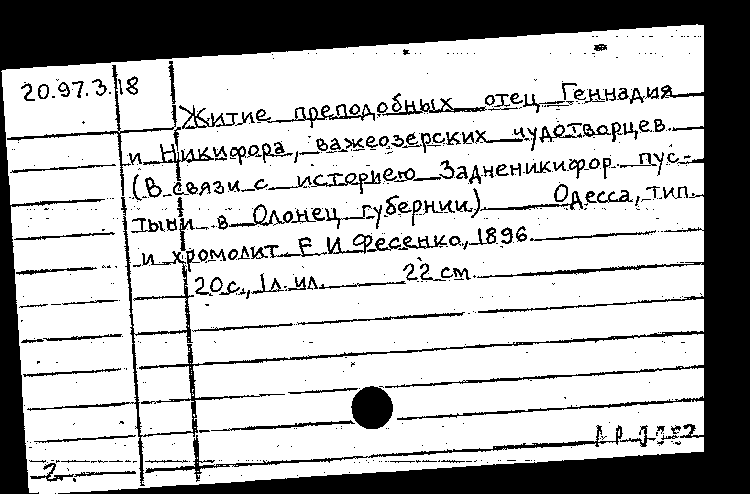 20.97.3.18
Житие преподобных отец Геннадия
и Никифора, важеозерских чудотворцев.
(В связи с историею Задненикифор пус-
тыни в Олонец губернии.) Одесса, тип.
и хромолит Е И Фесенко, 1896.
20с., 1л. ил. 22 см.
2.